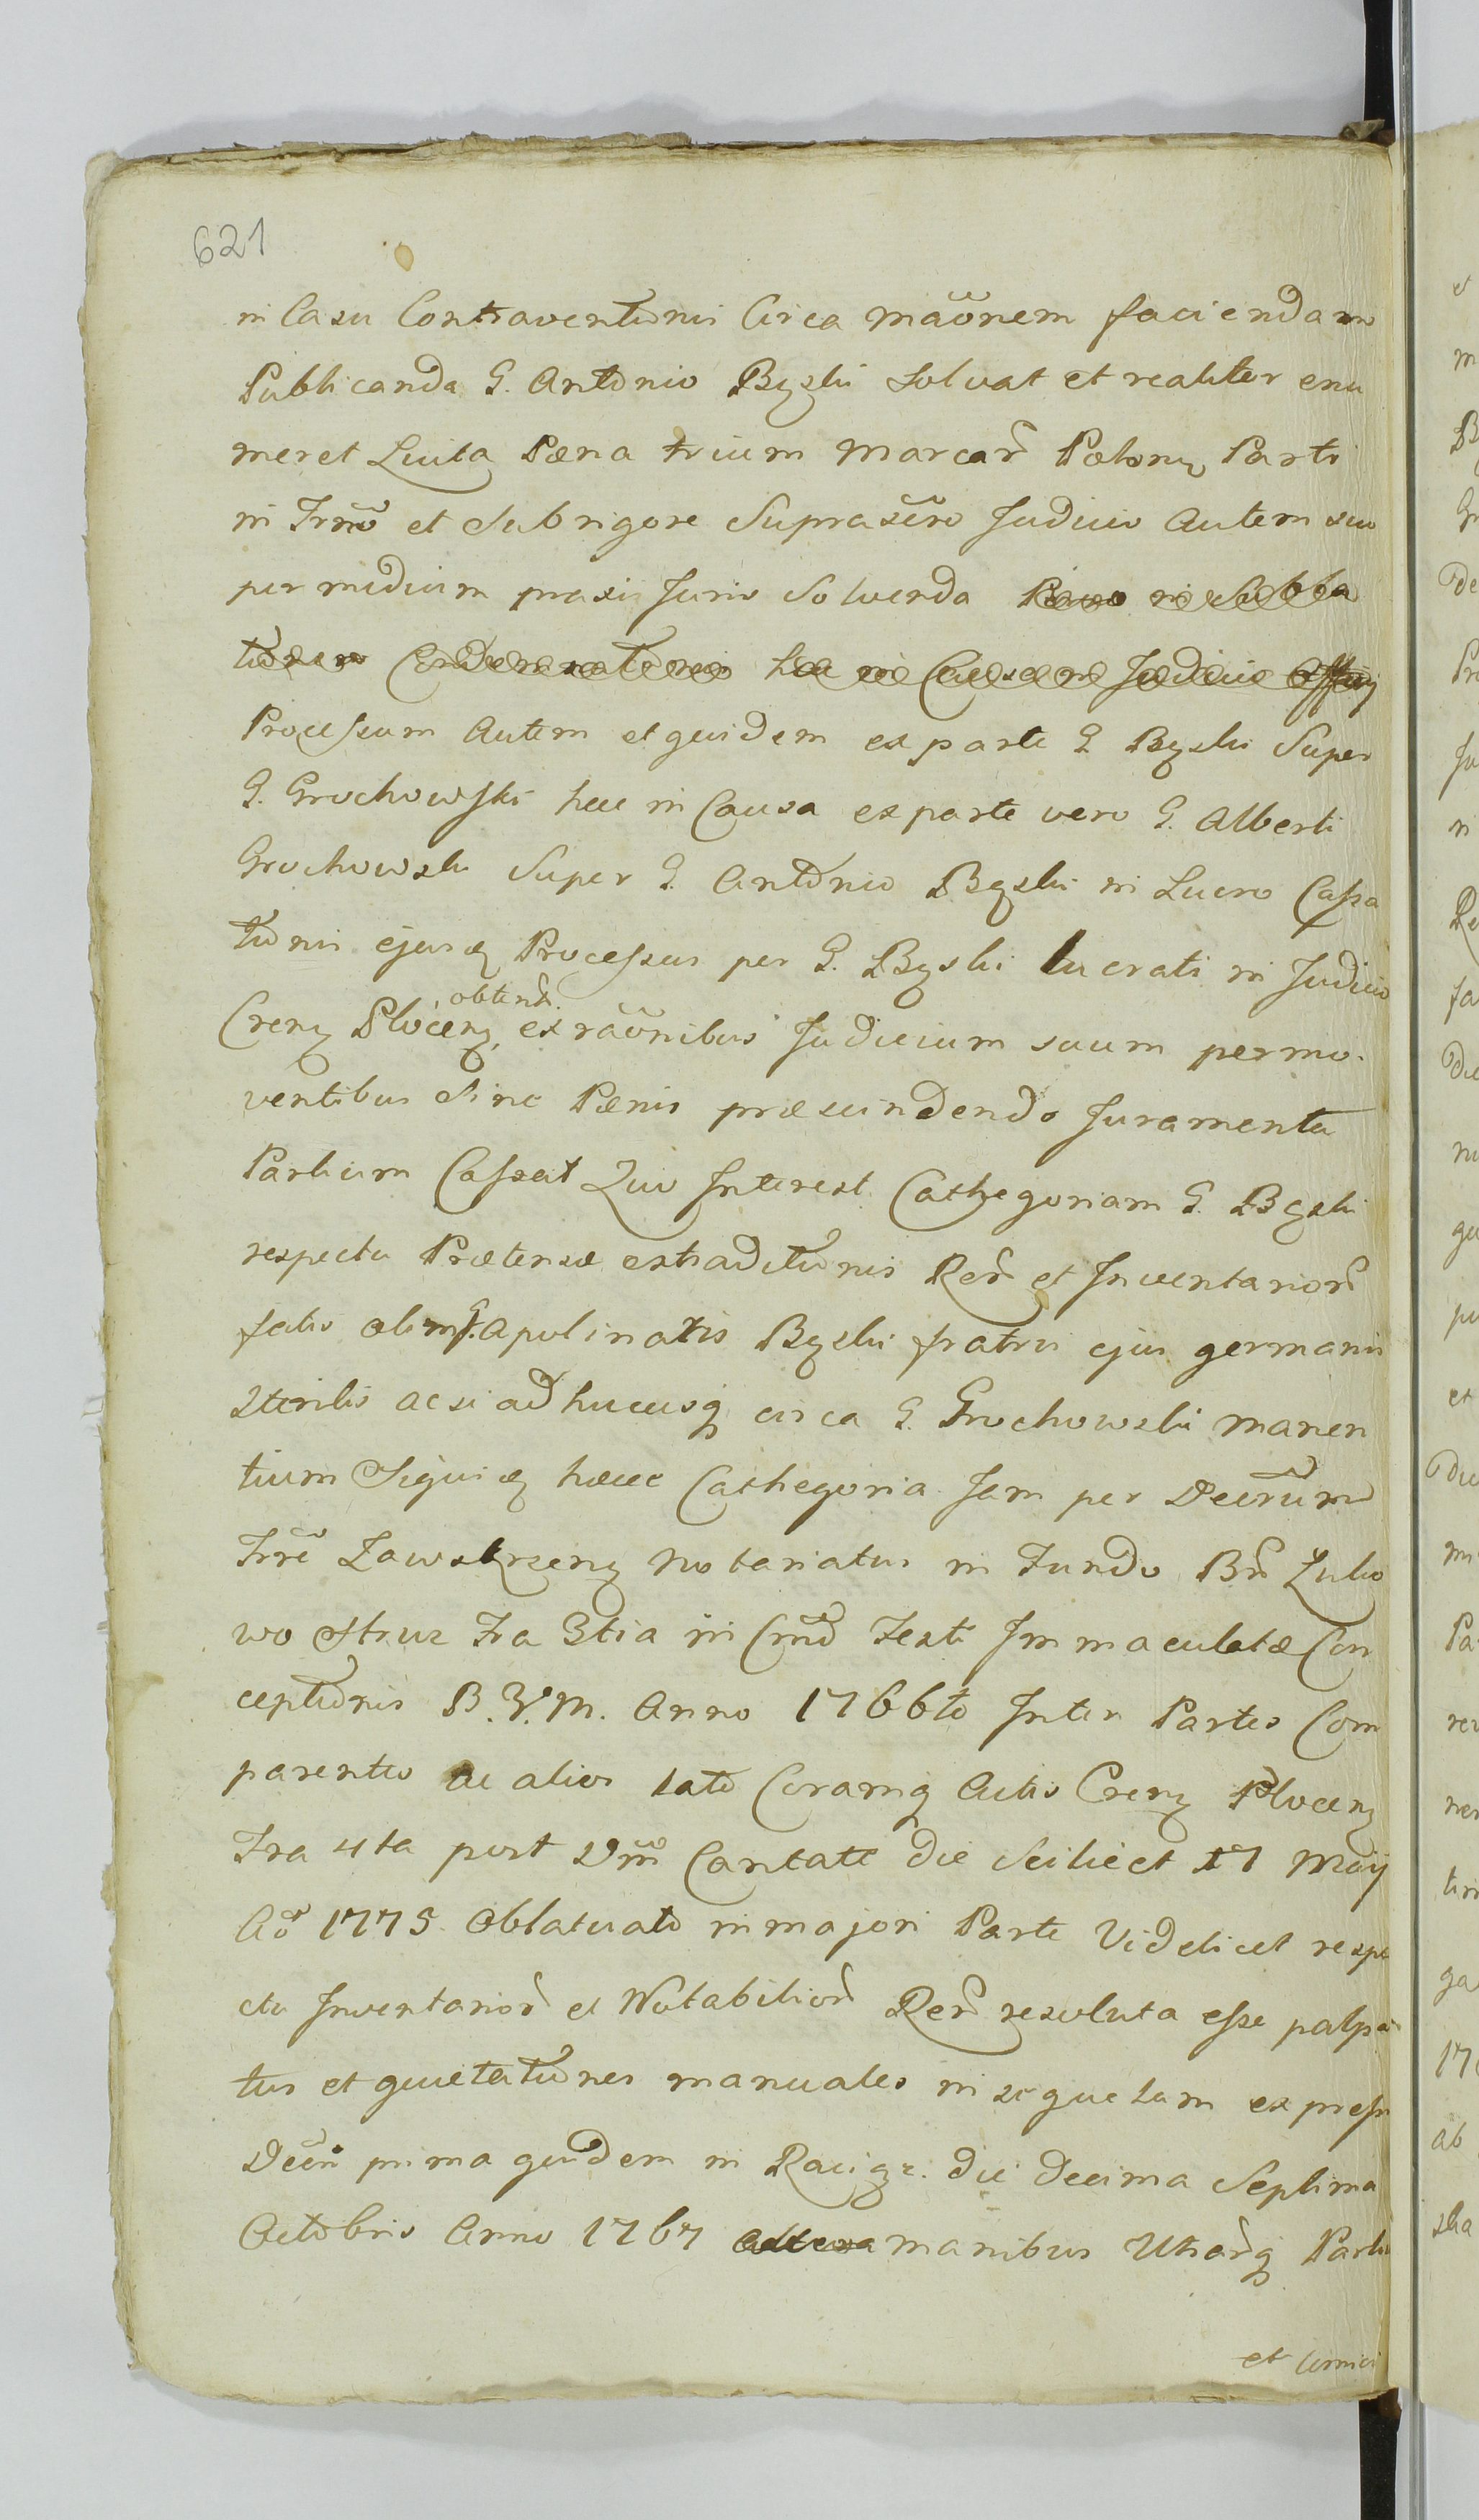 621
in Casu Contraventionis Circa mãonem faciendam
Publicanda G. Antonio Bęski Solvat et realiter enu
meret Luita Pæna trium Marcar̃ Polon̄ Parti
in Trm̃o et Sub rigore Suprascr̃o Judicio Autem suo
per medium praxis Juris Solvenda in Subla
tionem Condemnationis hac in Causa in Judicio
Processum Autem et quidem ex parte G Bęski Super
G. Grochowski hac in Causa ex parte vero G. Alberti
Grochowski Super G. Antonio Bęski in Lucro Cassa
tionis ejusq Processus per G. Bęski lucrati in Judicio
obtent.
Cren̄ Plocen̄, ex rãonibus Judicium suum permo-
ventibus Sine Pænis præscindendo Juramenta
Partium Cassat Quo Interest Cathegoriam G. Bęski
respectu Prætensæ extraditionis Rer̃ et Inventarior̃
fatis olim G. Apolinaris Bęski fratris ejus germani
Sterilis ac si adhucusq circa G. Grochowski manen
tium Siquidē hæcc Cathegoria Jam per Decrũm
Trrẽ Zawskrzen̄ Notariatus in Fundo Bñr Żuko
wo Strus Fra 3tia in Crm̃o Festi Immaculatæ Con
ceptionis B. V. M. Anno 1766to Inter Partes Com
parentes ac alios lato Coramq Actis Cren̄ Plocen̄
Fra 4ta post Dm̃ Cantate die Scilicet 17 Maij
Aõ 1775 Oblatuato in majori Parte Videlicet respe
ctu Inventarior̃ et Notabilior̃ Rer̃ resoluta esse palpa
tur et quietationes manuales in sequelam ex press
Decr̃i prima quidem in Raciąż. die decima Septima
Octobris Anno 1767 altera manibus Utrarq̃ Partiu
et Amici